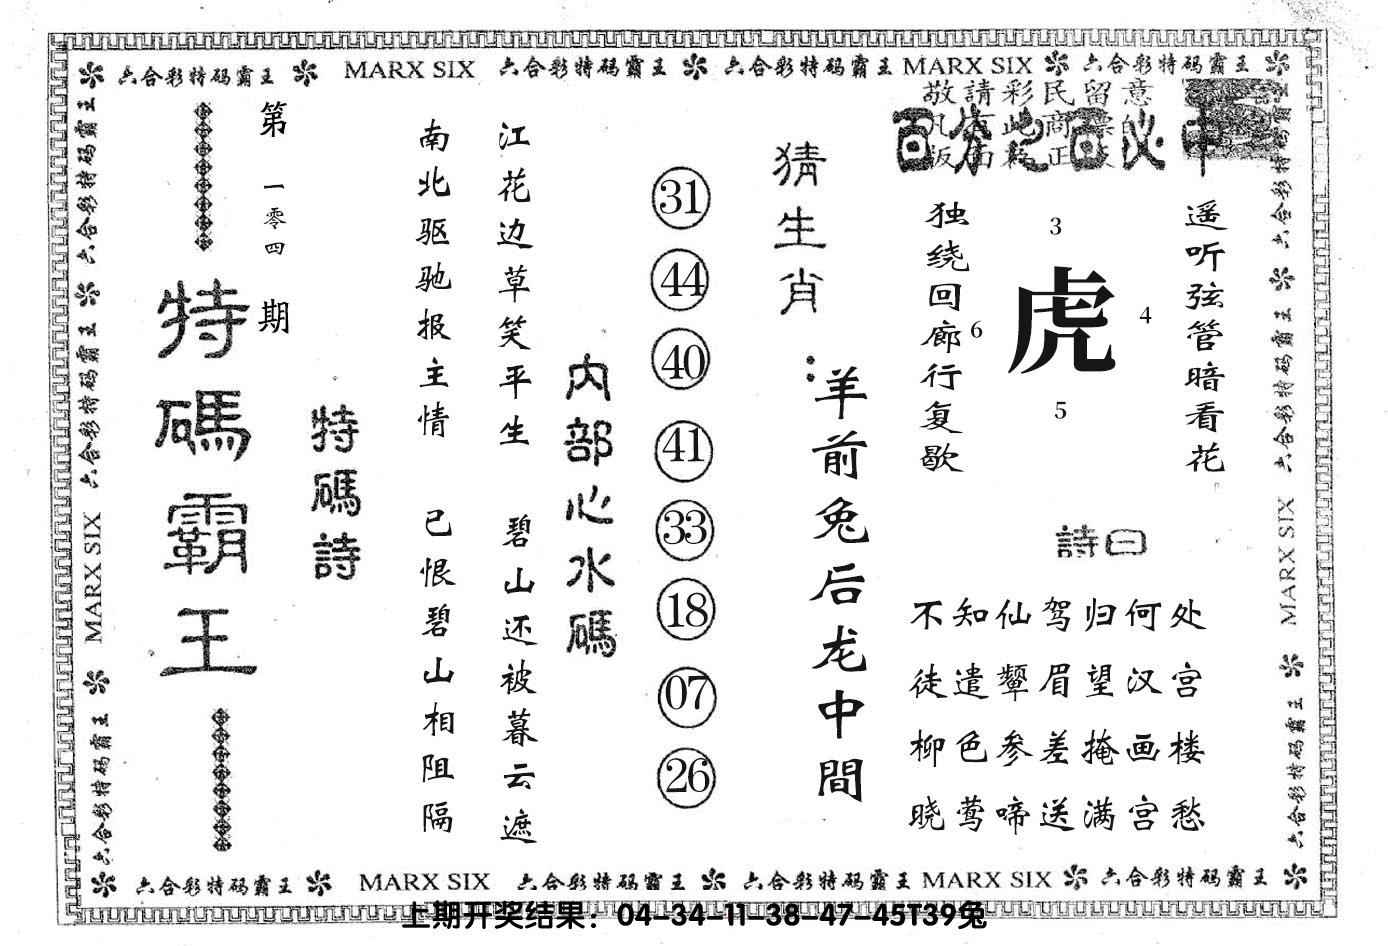 六合彩特码霸王 MARX SIX 六合彩特码霸王 六合彩特码霸王 MARX SIX 六合彩特码霸王
敬請彩民留意
百分之百必中
遥听弦管暗看花
独绕回廊行复歇
3
虎
4
6
5
詩曰
不知仙驾归何处
徒遣颦眉望汉宫
柳色参差掩画楼
晓莺啼送满宫愁
猜生肖:
羊前兔后龙中間
31
44
40
41
33
18
07
26
内部心水碼
江花边草笑平生 碧山还被暮云遮
南北驱驰报主情 已恨碧山相阻隔
特碼詩
第一零四期
特碼霸王
六合彩特码霸王
六合彩特码霸王
MARX SIX
六合彩特码霸王
六合彩特码霸王
六合彩特码霸王
MARX SIX
六合彩特码霸王
六合彩特码霸王 MARX SIX 六合彩特码霸王 六合彩特码霸王 MARX SIX 六合彩特码霸王
上期开奖结果：04-34-11-38-47-45T39兔